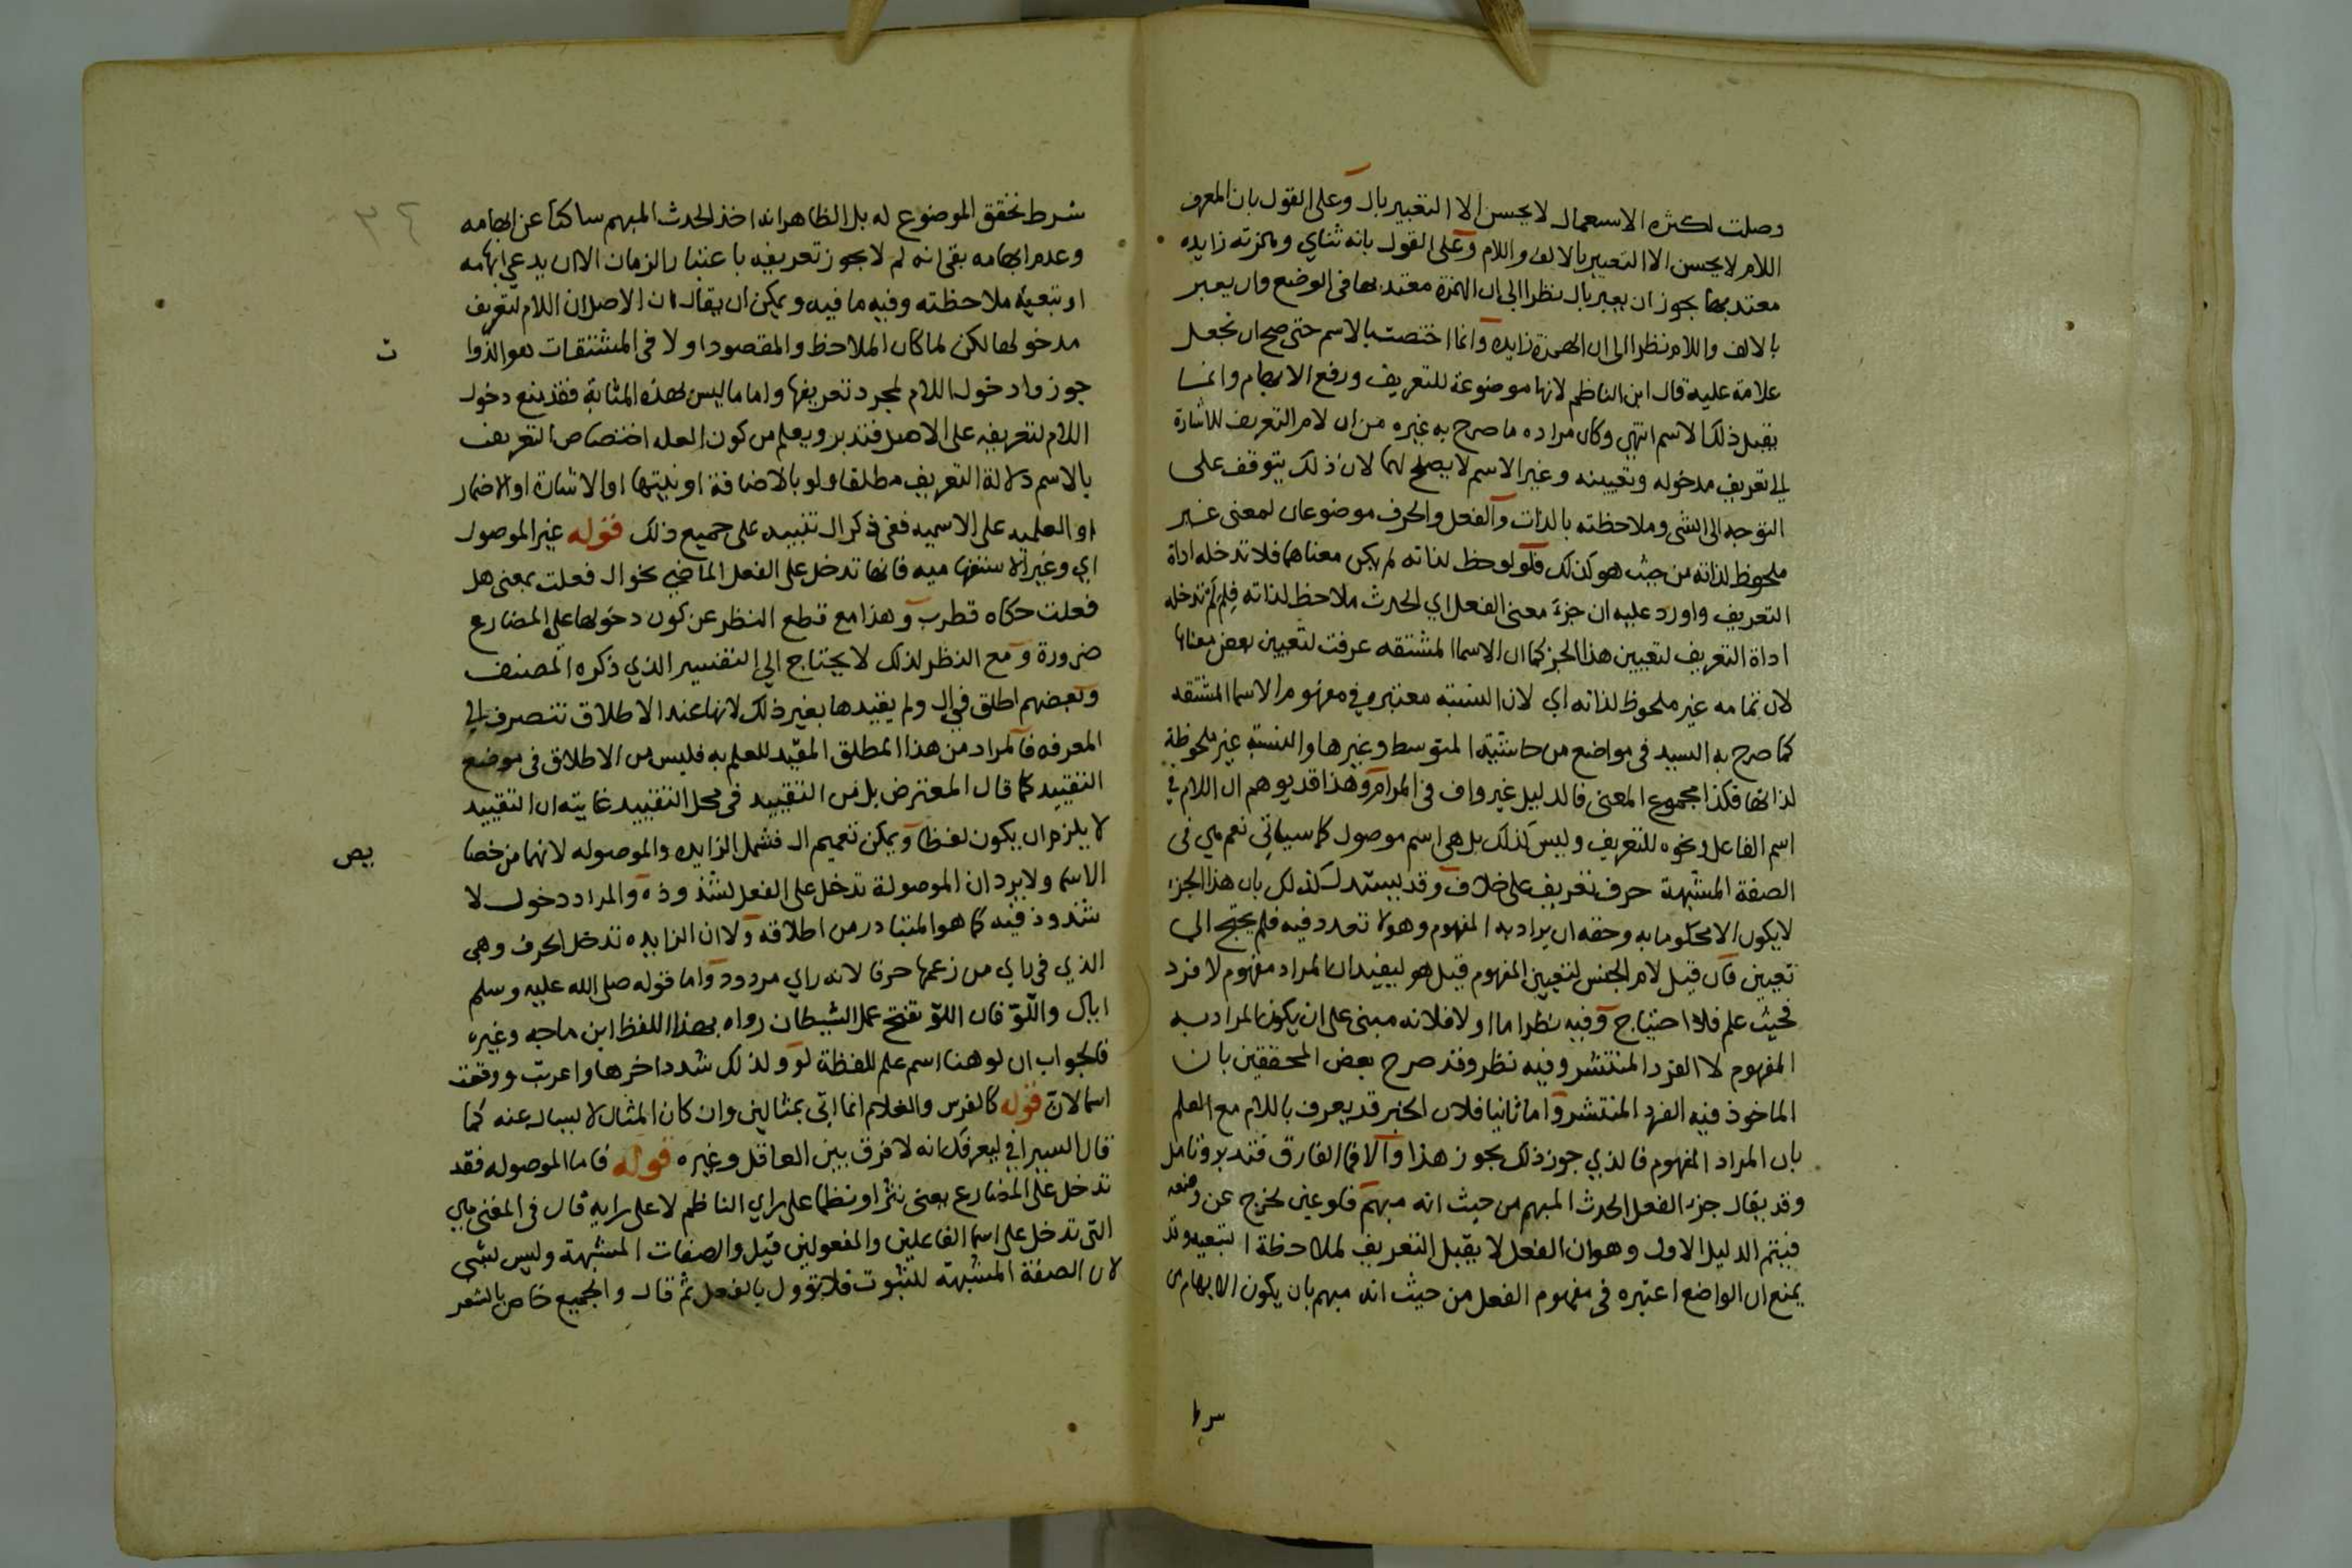 وصلت لكثره الاستعمال لا يحسن الا التعبير بال وعلى القول بان المعرف
اللام لا يحسن الا التعبير بالالف واللام وعلى القول بانه ثناي وهمزته زايده
معتد بها يجوز ان يعبر بال نظرا الى ان الهمزة معتد بها فى الوضع وان يعبر
بالالف واللام نظرا الى ان الهمزة زايده وانما اختصت بالاسم حتى صح ان تجعل
علامة عليه قال ابن الناظم لانها موضوعة للتعريف ورفع الابهام وانما
يقبل ذلك الاسم انتهى وكان مراده ما صرح به غيره من ان لام التعريف للاشارة
الى تعريف مدخوله وتعيينه وغير الاسم لا يصلح لها لان ذلك يتوقف على
التوجه الى الشى وملاحظته بالذات والفعل والحرف موضوعان لمعنى غير
ملحوظ لذاته من حيث هو كذلك فلو لوحظ لذاته لم يكن معناهما فلا تدخله اداة
التعريف واورد عليه ان جزء معنى الفعل اي الحدث ملاحظ لذاته فلم لم تدخله
اداة التعريف لتعيين هذا الجز كما ان الاسما المشتقه عرفت لتعيين بعض معناها
لان تمامه غير ملحوظ لذاته اي لان النسبة معتبره في مفهوم الاسما المشتقه
كما صرح به السيد فى مواضع من حاشية المتوسط وغيرها والنسبة غير ملحوظة
لذاتها فكذا مجموع المعنى فالدليل غير واف فى المرام وهذا قد يوهم ان اللام في
اسم الفاعل ونحوه للتعريف وليس كذلك بل هى اسم موصول كما سياتي نعم هي فى
الصفة المشبهة حرف تعريف على خلاف وقد يستدل لذلك بان هذا الجزء
لا يكون الا محكوما به وحقه ان يراد به المفهوم وهو لا تعدد فيه فلم يحتج الى
تعيين فان قيل لام الجنس لتعيين المفهوم قيل هو ليفيد ان المراد مفهوم لا فرد
فحيث علم فلا احتياج وفيه نظر اما اولا فلانه مبنى على ان يكون المراد به
المفهوم لا الفرد المنتشر وفيه نظر وقد صرح بعض المحققين بان
الماخوذ فيه الفرد المنتشر واما ثانيا فلان الخبر قد يعرف باللام مع العلم
بان المراد المفهوم فالذي جوز ذلك يجوز هذا والا فما الفارق فتدبر وتامل
وقد يقال جزء الفعل الحدث المبهم من حيث انه مبهم فلو عين لخرج عن وضعه
فيتم الدليل الاول وهو ان الفعل لا يقبل التعريف لملاحظة التبعيه وقد
يمنع ان الواضع اعتبره فى مفهوم الفعل من حيث انه مبهم بان يكون الابهام
شرط
شرط تحقق الموضوع له بل الظاهر انه اخذ الحدث المبهم ساكتا عن ابهامه
وعدم ابهامه بقى انه لم لا يجوز تعريفه باعتبار الزمان الا ان يدعي ابهامه
او تبعية ملاحظته وفيه ما فيه ويمكن ان يقال ان الاصل ان اللام لتعريف
مدخولها لكن لما كان الملاحظ والمقصود اولا فى المشتقات هو الذوا
ت
جوزوا دخول اللام لمجرد تعريفها واما ما ليس بهذه المثابة فقد يمنع دخول
اللام لتعريفه على الاصل فتدبر ويعلم من كون العله اختصاص التعريف
بالاسم دلالة التعريف مطلقا ولو بالاضافة او نيتها او الاشارة او الاضمار
او العلميه على الاسميه ففى ذكر ال تنبيه على جميع ذلك قوله غير الموصول
اي وغير الاستفهاميه فانها تدخل على الفعل الماضي نحو ال فعلت بمعنى هل
فعلت حكاه قطرب وهذا مع قطع النظر عن كون دخولها على المضارع
ضرورة ومع النظر لذلك لا يحتاج الي التفسير الذي ذكره المصنف
وبعضهم اطلق في ال ولم يقيدها بغير ذلك لانها عند الاطلاق تنصرف الى
المعرفه فالمراد من هذا المطلق المقيد للعلم به فليس من الاطلاق فى موضع
التقييد كما قال المعترض بل من التقييد فى محل التقييد غايته ان التقييد
لا يلزم ان يكون لفظا ويمكن تعميم ال فشمل الزايده والموصوله لانهما من خصا
يص
الاسما ولا يرد ان الموصولة تدخل على الفعل لشذوذه والمراد دخول لا
شذوذ فيه كما هو المتبادر من اطلاقه ولا ان الزايده تدخل الحرف وهى
الذي فى راي من زعمها حرفا لانه راي مردود واما قوله صلى الله عليه وسلم
اياك واللو فان اللو تفتح عمل الشيطان رواه بهذا اللفظ ابن ماجه وغيره
فالجواب ان لو هنا اسم علم للفظة لو ولذلك شدد اخرها واعربت ووقعت
اسما لان قوله كالفرس والغلام انما اتى بمثالين وان كان المثال لا يسال عنه كما
قال السيرافي ليعرفك انه لا فرق بين العاقل وغيره قوله فاما الموصوله فقد
تدخل على المضارع يعنى نثرا ونظما على راي الناظم لا على رايه قال فى المغنى هي
التى تدخل على اسما الفاعلين والمفعولين قيل والصفات المشبهة وليس بشى
لان الصفة المشبهة للثبوت فلا تؤول بالفعل ثم قال والجميع خاص بالشعر